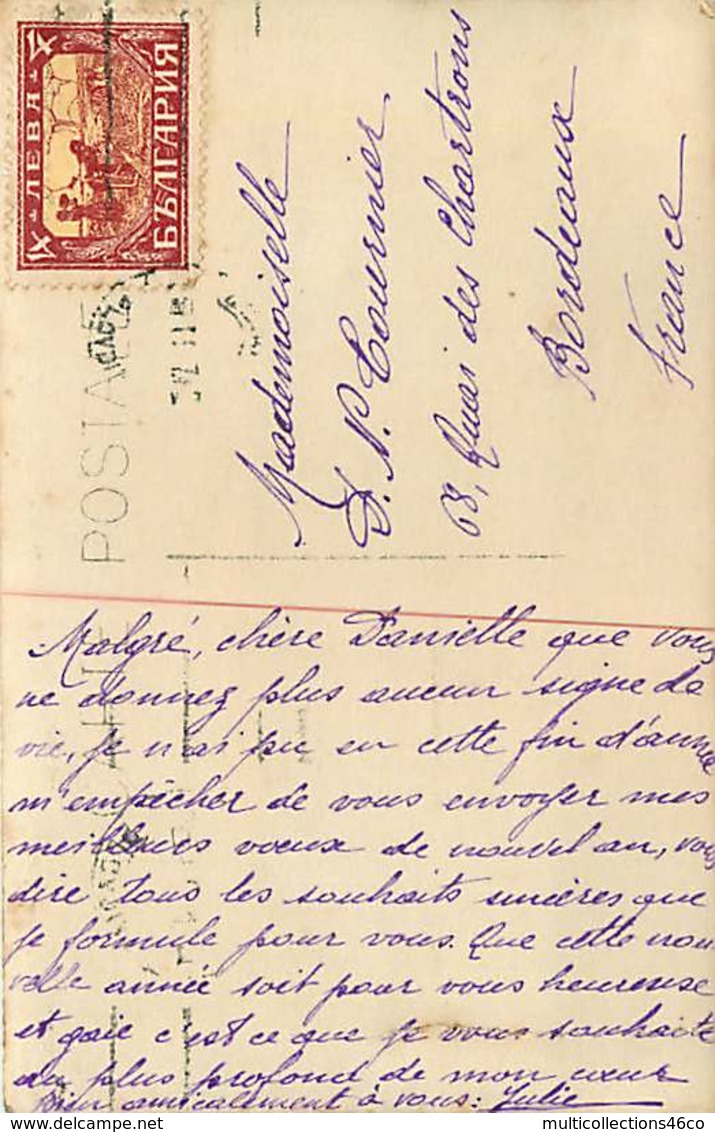 4 ЛЕВА 4
БЪЛГАРИЯ
POSTA
Mademoiselle
D. N. Cournier
68, Quai des Chartrons
Bordeaux
France
Malgré, chère Danielle que vous
ne donnez plus aucun signe de
vie, je n'ai pu en cette fin d'année
m'empêcher de vous envoyer mes
meilleurs voeux de nouvel an, vous
dire tous les souhaits sincères que
je formule pour vous. Que cette nou
velle année soit pour vous heureuse
et gaie c'est ce que je vous souhaite
du plus profond de mon coeur
Bien amicalement à vous: Julie
multicollections46co